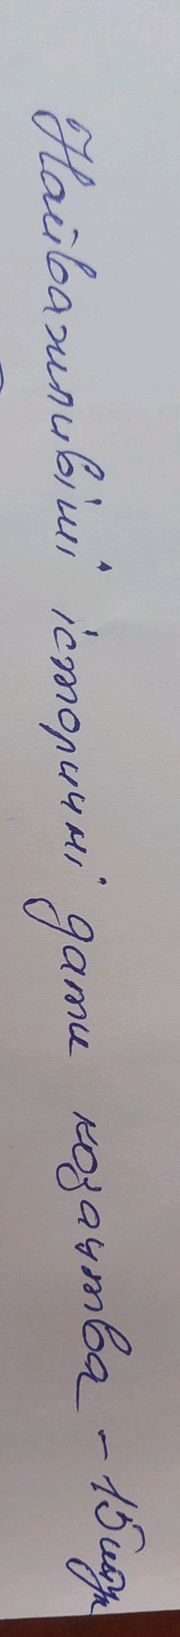 Найважливіші історичні дати козацтва - 15 шт